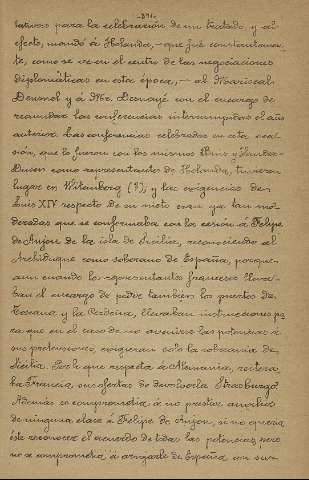 -371-
lativos para la celebración de un tratado, y al
efecto, mandó á Holanda, - que fué constantemen-
te, como se ve en el centro de las negociaciones
diplomáticas en esta época, - al Mariscal
y á Mr. con el encargo de
reanudar las conferencias interrumpidas el año
anterior. Las conferencias celebradas en esta oca-
sión, que lo fueron con los mismos Buis y Vander-
Dusen como representantes de Holanda, tuvieron
lugar en (1), y las exigencias de
Luis XIV respecto de su nieto eran ya tan mo-
deradas que se conformaba con la cesión á Felipe
de Anjou de la isla de Sicilia, reconociendo al
Archiduque como soberano de España, porque
aun cuando los representantes franceses lleva-
ban el encargo de pedir tambien los puertos de
Toscana y la Cerdeña, llevaban instrucciones pa
ra que en el caso de no avenirse las potencias á
sus pretensiones, exigieran solo la soberanía de
Sicilia. Por lo que respecta á Alemania, reitera-
ba Francia, sus ofertas de devolverla Strasburgo.
Además se comprometia á no prestar auxilios
de ninguna clase á Felipe de Anjou, si no queria
éste reconocer el acuerdo de todas las potencias, pero
no se comprometia á arrojarle de España con sus